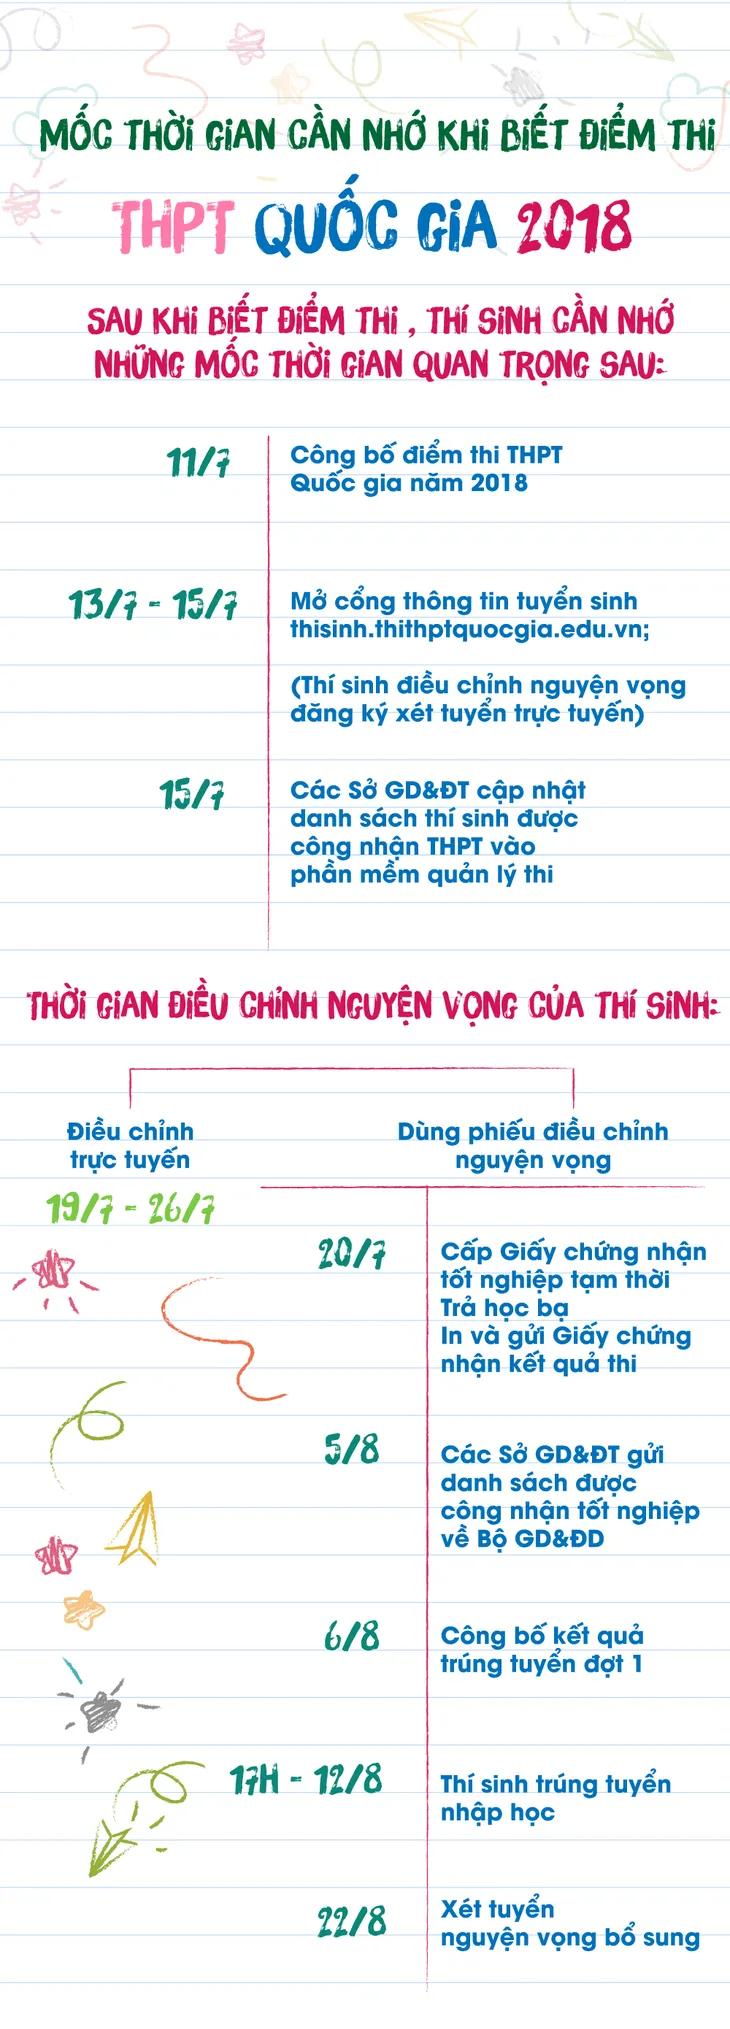 MỐC THỜI GIAN CẦN NHỚ KHI BIẾT ĐIỂM THI
THPT QUỐC GIA 2018
SAU KHI BIẾT ĐIỂM THI , THÍ SINH CẦN NHỚ
NHỮNG MỐC THỜI GIAN QUAN TRỌNG SAU:
11/7
Công bố điểm thi THPT
Quốc gia năm 2018
13/7 - 15/7
Mở cổng thông tin tuyển sinh
thisinh.thithptquocgia.edu.vn;
(Thí sinh điều chỉnh nguyện vọng
đăng ký xét tuyển trực tuyến)
15/7
Các Sở GD&ĐT cập nhật
danh sách thí sinh được
công nhận THPT vào
phần mềm quản lý thi
THỜI GIAN ĐIỀU CHỈNH NGUYỆN VỌNG CỦA THÍ SINH:
Điều chỉnh
trực tuyến
19/7 - 26/7
Dùng phiếu điều chỉnh
nguyện vọng
20/7
Cấp Giấy chứng nhận
tốt nghiệp tạm thời
Trả học bạ
In và gửi Giấy chứng
nhận kết quả thi
5/8
Các Sở GD&ĐT gửi
danh sách được
công nhận tốt nghiệp
về Bộ GD&ĐD
6/8
Công bố kết quả
trúng tuyển đợt 1
17H - 12/8
Thí sinh trúng tuyển
nhập học
22/8
Xét tuyển
nguyện vọng bổ sung